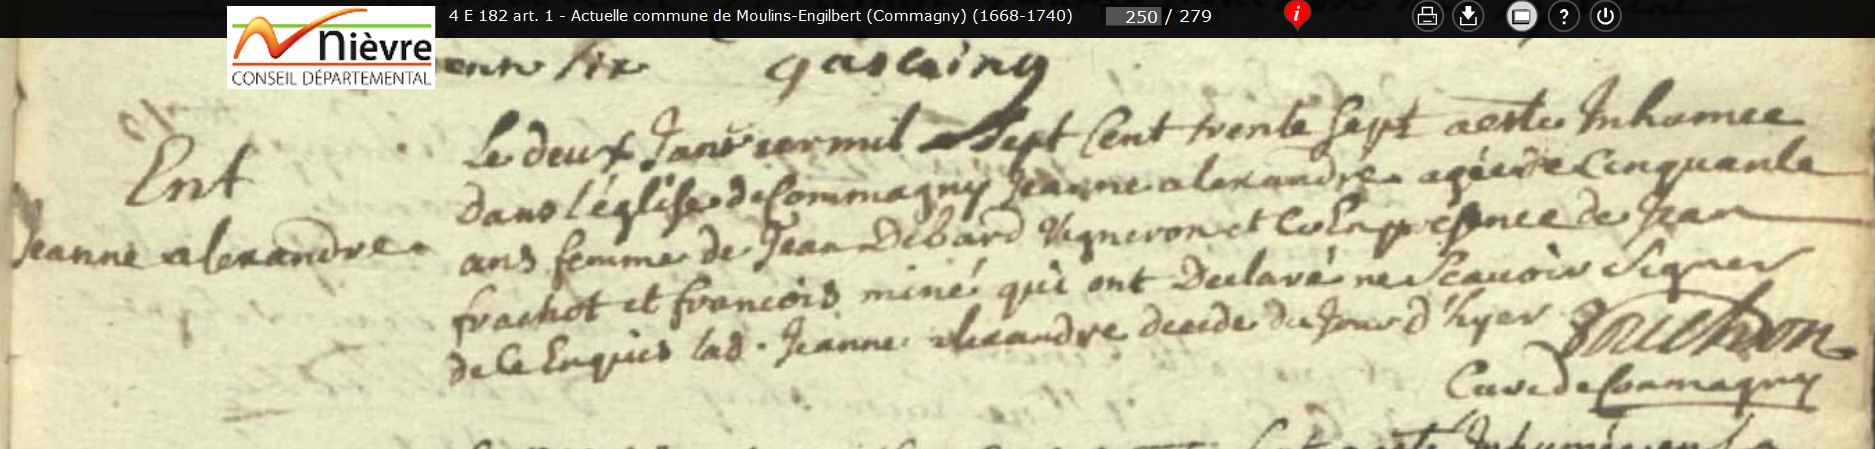 4 E 182 art. 1 - Actuelle commune de Moulins-Engilbert (Commagny) (1668-1740) 250 / 279
Nièvre
CONSEIL DÉPARTEMENTAL
six gascoing
Ent
Jeanne alexandre
Le deux Janvier mil Sept Cent trente Sept a este Inhumee
dans l'église de Commagny Jeanne alexandre agée de Cinquante
ans femme de Jean Debard Vigneron et Ce En presence de Jean
frachot et francois miné qui ont Declaré ne Scavoir Signer
de Ce Enquis lad. Jeanne alexandre decede du Jour d'hyer
Curé de Commagny